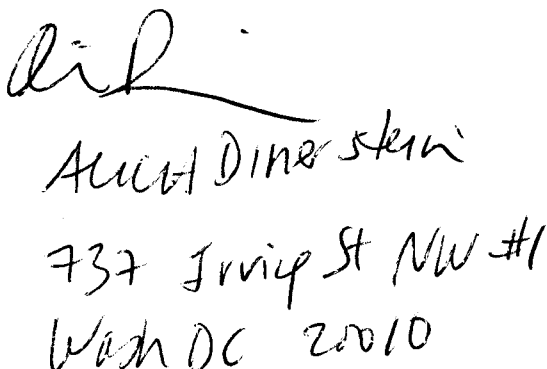 Dinerstein
737 Irving St NW #1
Wash DC 20010